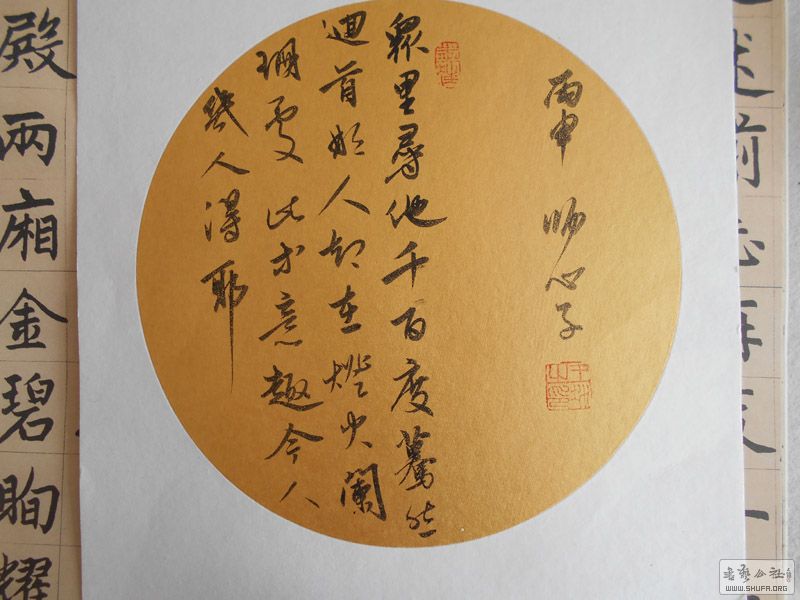 丙申 師心子
眾里尋他千百度驀然
迴首那人却在燈火闌
珊處此等意趣今人
幾人得耶
殿兩廂金碧眴耀
书艺公社
WWW.SHUFA.ORG